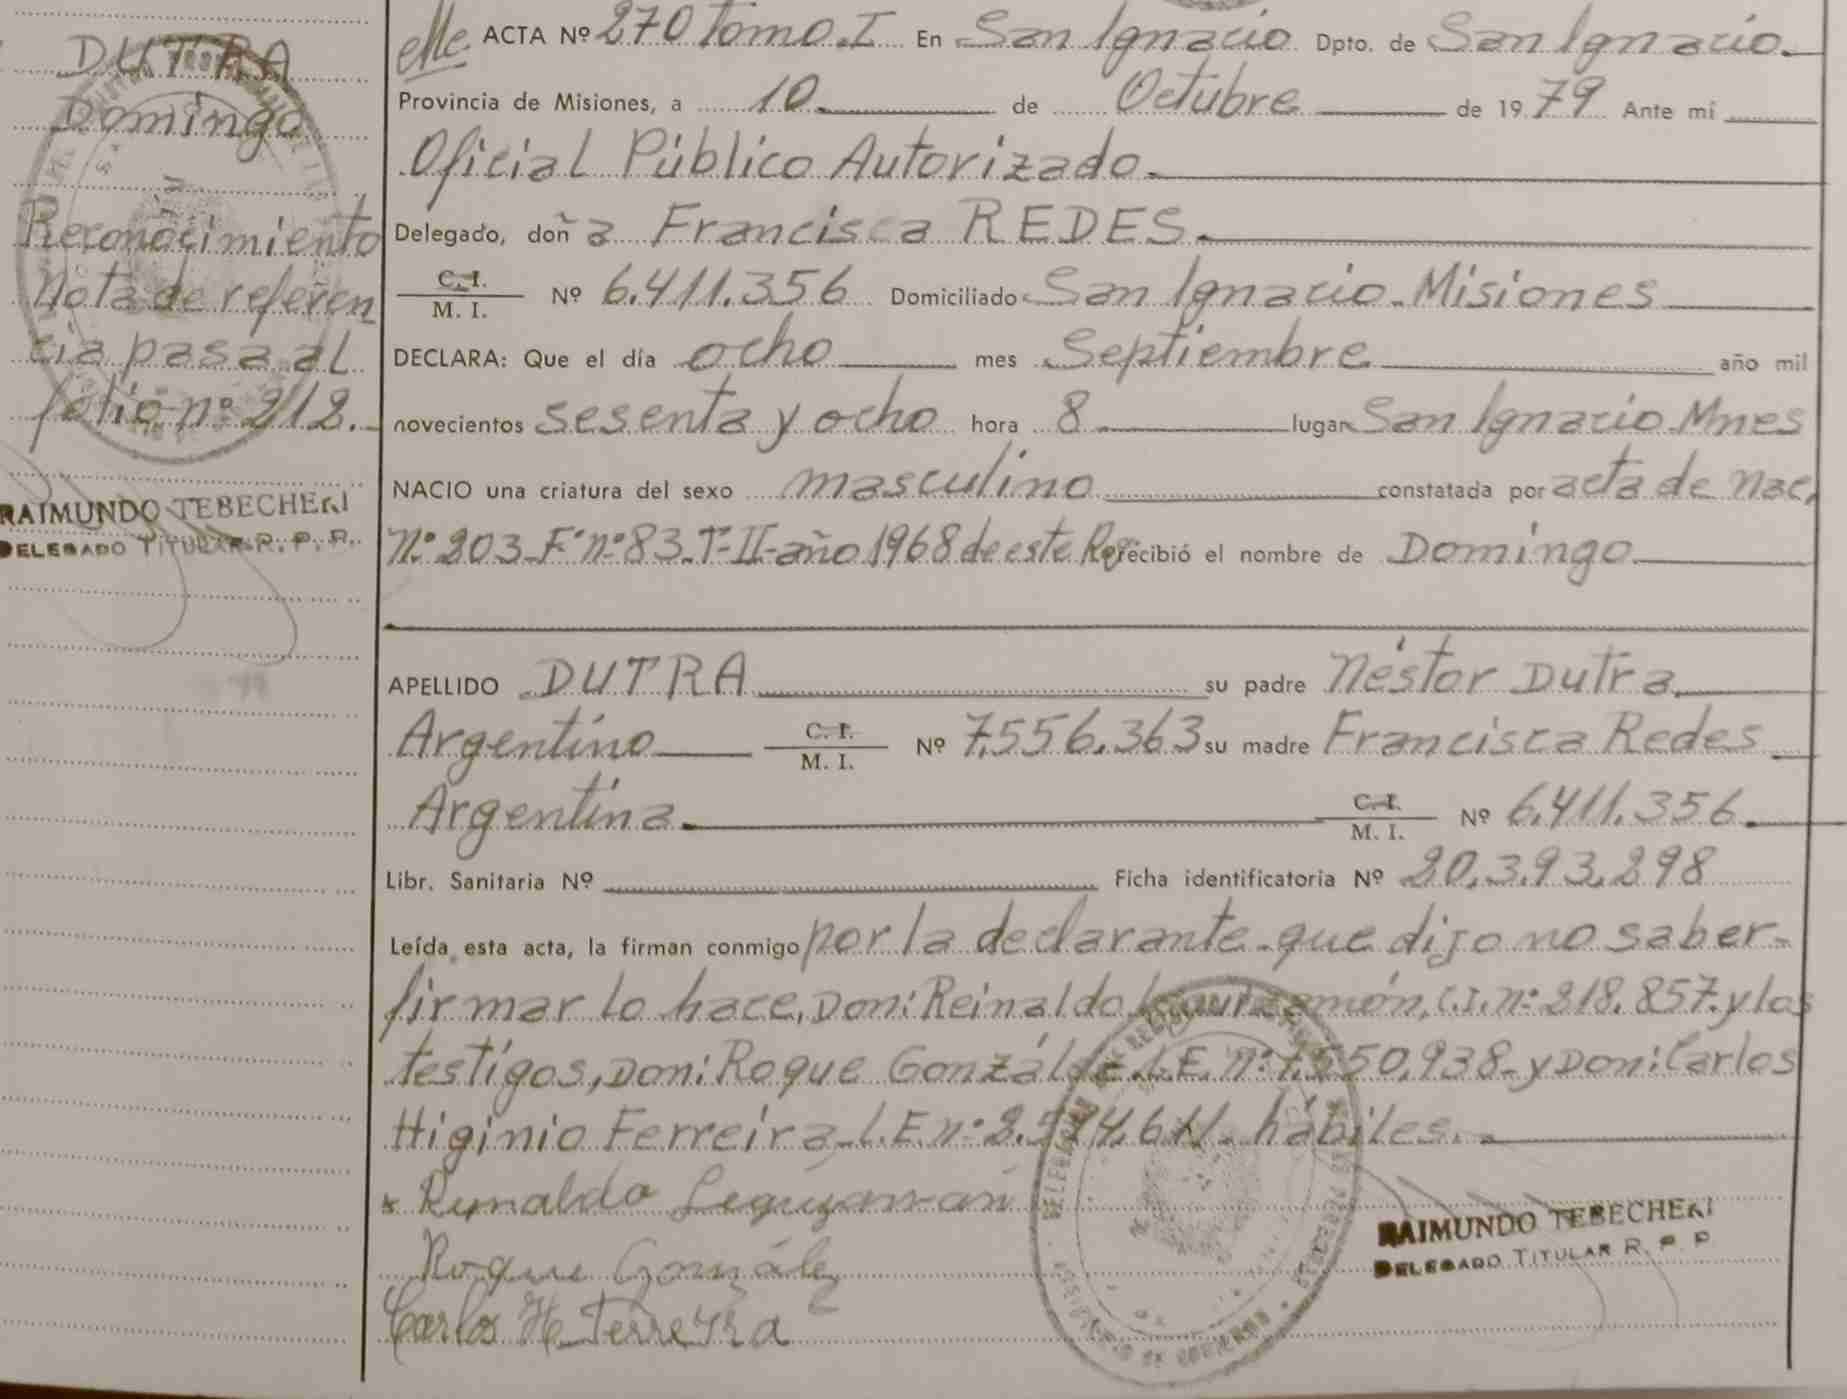 DUTRA
Domingo
Reconocimiento
Nota de referen
cia pasa al
folio nº 212.
RAIMUNDO TEBECHERI
DELEGADO TITULAR R. P. P.
ACTA Nº 270 Tomo.I En San Ignacio Dpto. de San Ignacio.
Provincia de Misiones, a 10. de Octubre de 1979 Ante mí
Oficial Público Autorizado.
Delegado, doña Francisca REDES.
C. I.
M. I. Nº 6.411.356 Domiciliado San Ignacio. Misiones
DECLARA: Que el día ocho mes Septiembre año mil
novecientos sesenta y ocho hora 8 lugar San Ignacio Mnes
NACIO una criatura del sexo masculino constatada por acta de nac.
nº 203-Fº nº 83-Tº-II-año 1968 de este Reg. recibió el nombre de Domingo
APELLIDO DUTRA su padre Néstor Dutra.
Argentino C. I. M. I. Nº 7.556.363 su madre Francisca Redes
Argentina. C. I. M. I. Nº 6.411.356.
Libr. Sanitaria Nº Ficha identificatoria Nº 20.393.298
Leída esta acta, la firman conmigo por la declarante-que dijo no saber-
firmar lo hace, Don: Reinaldo Leguizamón, C.I. nº 218.857. y los
testigos, Don: Roque González L.E. nº 7.550.938-y Don: Carlos
Higinio Ferreira-L.E nº hábiles.
Reinaldo Leguizamón
Roque González
Carlos H. Ferreyra
RAIMUNDO TEBECHERI
DELEGADO TITULAR R. P. P